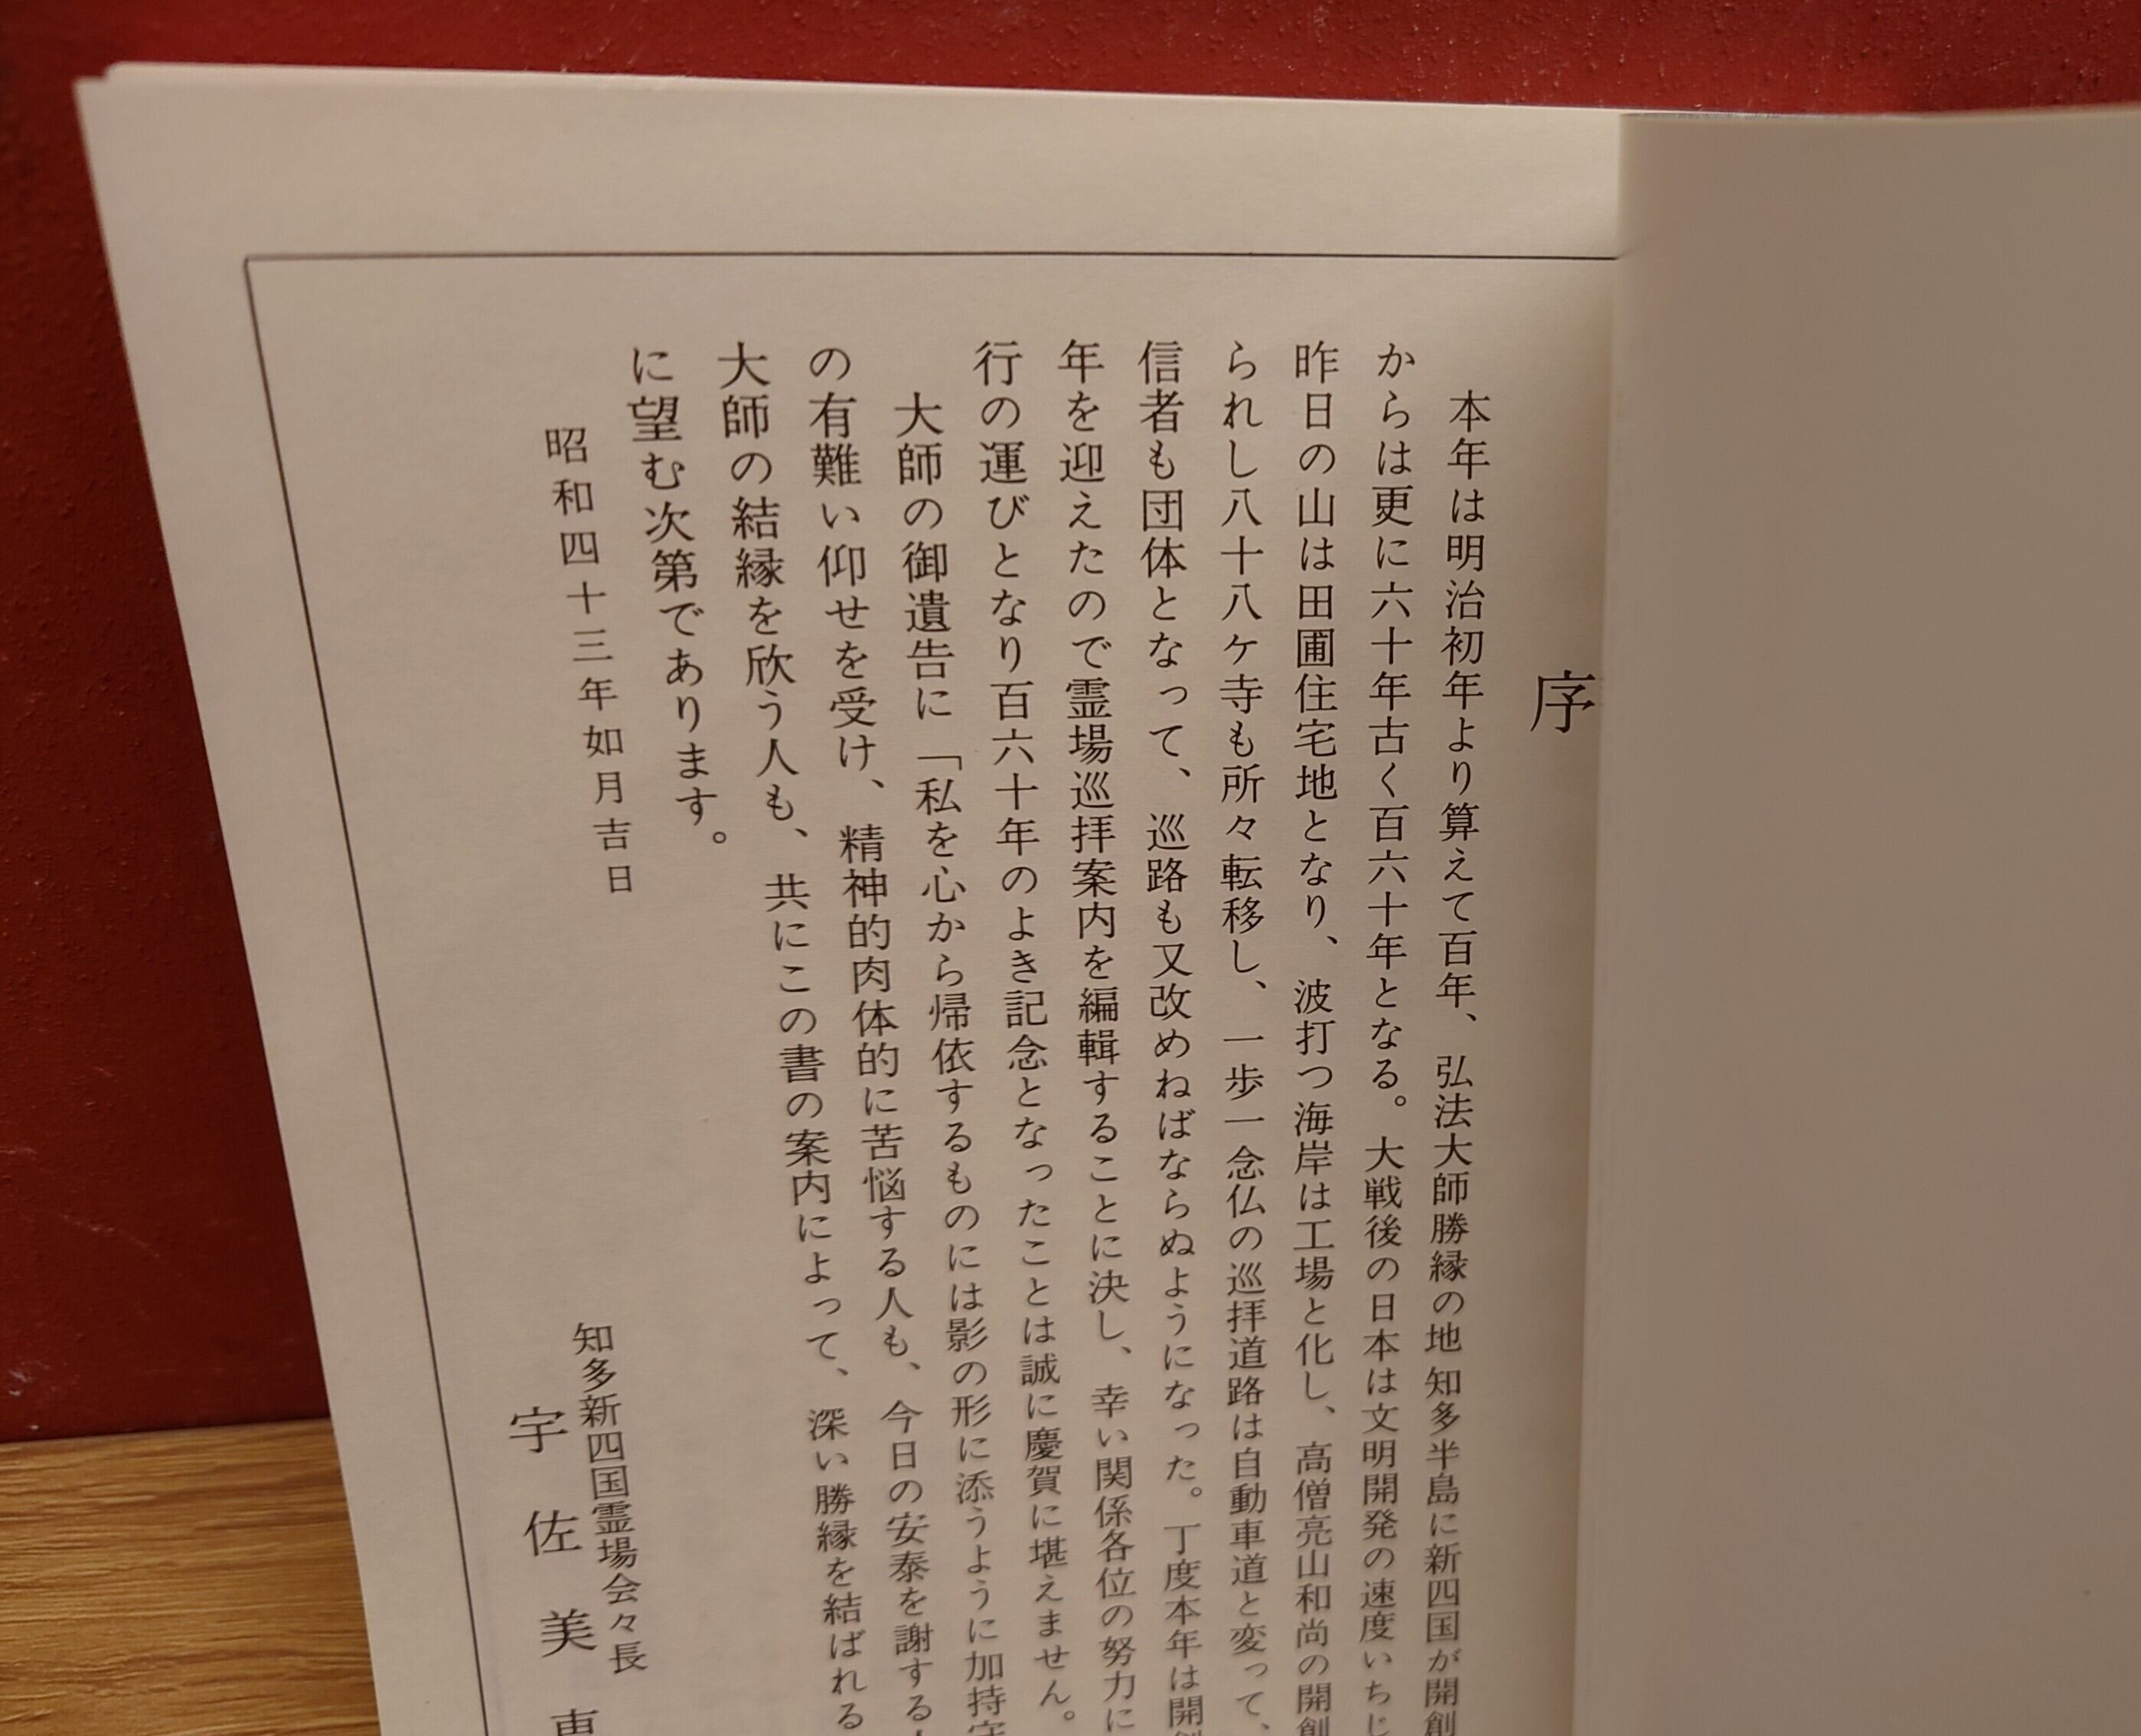 序
本年は明治初年より算えて百年、弘法大師勝縁の地 知多半島に新四国が開創
からは更に六十年古く百六十年となる。大戦後の日本は文明開発の速度いちじ
昨日の山は田圃住宅地となり、波打つ海岸は工場と化し、高僧亮山和尚の開創
られし八十八ケ寺も所々転移し、一歩一念仏の巡拝道路は自動車道と変って、
信者も団体となって、巡路も又改めねばならぬようになった。丁度本年は開
年を迎えたので霊場巡拝案内を編輯することに決し、幸い関係各位の努力に
行の運びとなり百六十年のよき記念となったことは誠に慶賀に堪えません。
大師の御遺告に「私を心から帰依するものには影の形に添うように加持
の有難い仰せを受け、精神的肉体的に苦悩する人も、今日の安泰を謝する
大師の結縁を欣う人も、共にこの書の案内によって、深い勝縁を結ばれる
に望む次第であります。
昭和四十三年如月吉日
知多新四国霊場会々長
宇佐美